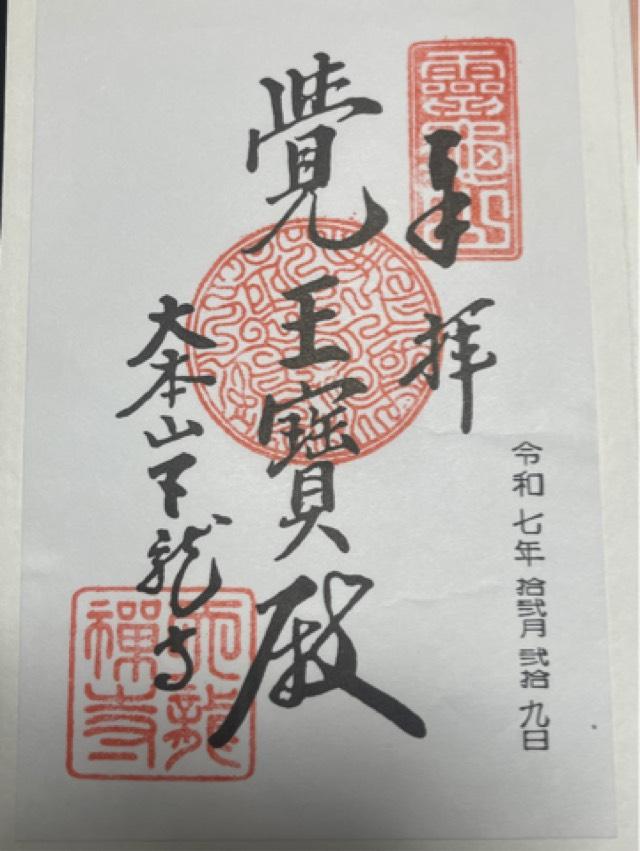 奉拝
令和七年 拾弐月 弐拾九日
覺王寶殿
大本山天龍寺
靈龜山
天龍禪寺